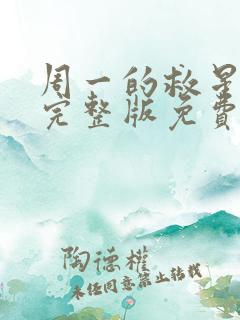 周一的救星
完整版免费
陶德權
未经同意禁止转载